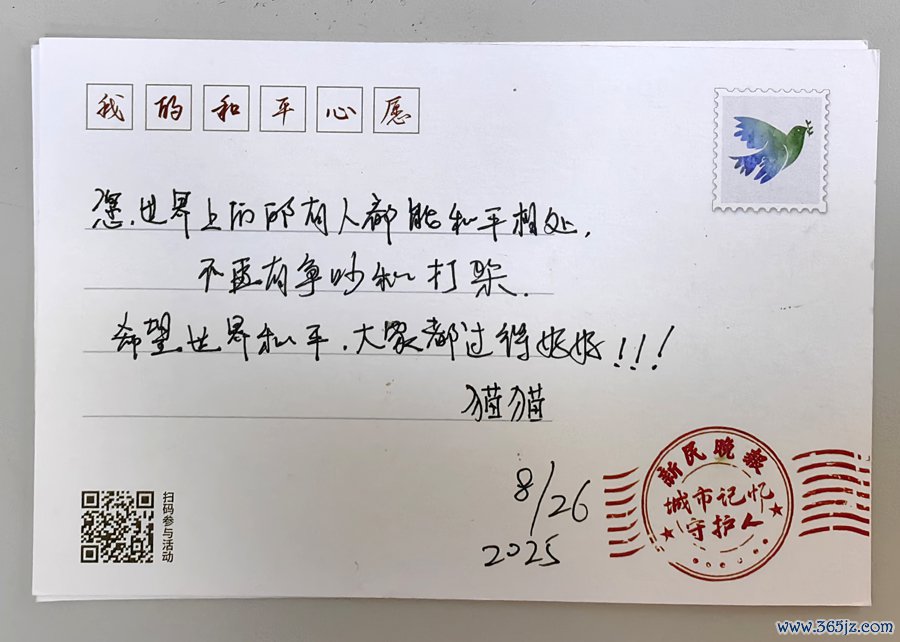 我的和平心愿
愿世界上的所有人都能和平相处,
不要有争吵和打架.
希望世界和平.大家都过得好好!!!
猫猫
8/26
2025
新民晚报
城市记忆
守护人
扫码参与活动
www.365jz.com